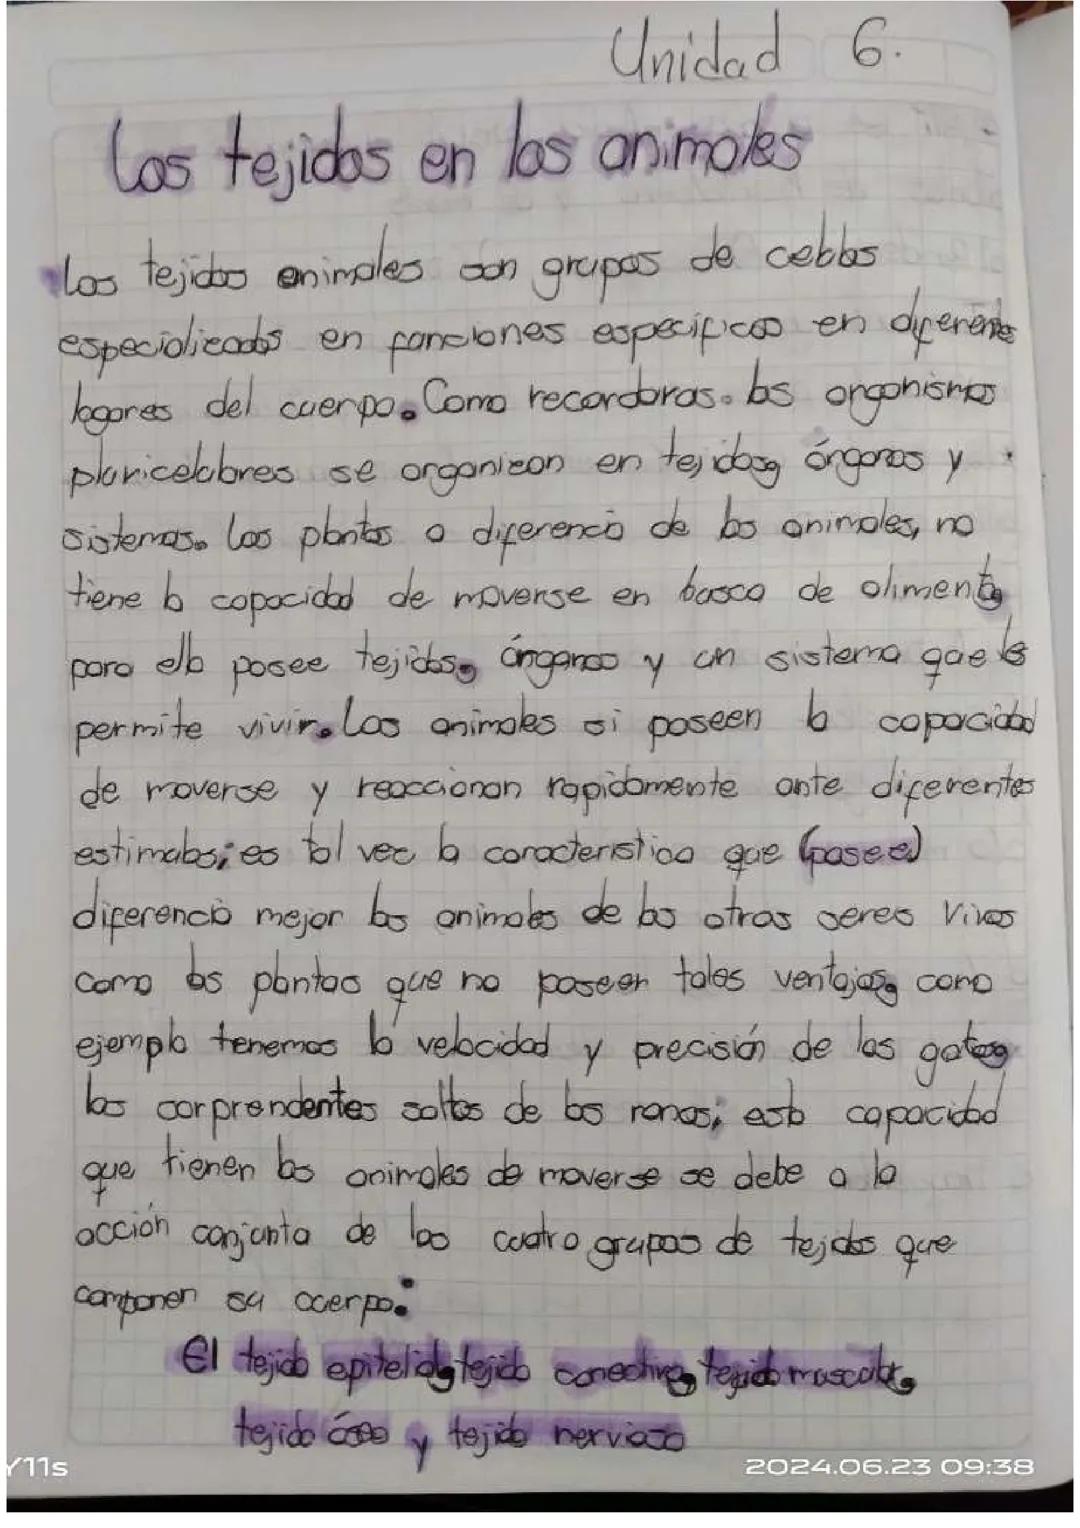 Unidad 6.
Los tejidos en los animales
Los tejidos animales son grupos de celulas
especializados en funciones especificas en diferentes
lugares del cuerpo. Como recordaras. los organismos
pluricelulares se organizan en tejidos, órganos y
sistemas. Las plantas a diferencia de los animales, no
tiene la capacidad de moverse en busca de alimento,
para ello posee tejidos, órganos y un sistema que le
permite vivir. Los animales si poseen la capacidad
de moverse y reaccionan rapidamente ante diferentes
estimulos; es tal vez la caracteristica que (posee)
diferencia mejor los animales de los otros seres vivos
como las plantas que no poseen tales ventajas, como
ejemplo tenemos la velocidad y precisión de los gatos,
los sorprendentes saltos de las ranas; esta capacidad
que tienen los animales de moverse se debe a la
acción conjunta de los cuatro grupos de tejidos que
componen su cuerpo:
El tejido epitelial, tejido conectivo, tejido muscular,
tejido óseo y tejido nervioso
Y11s
2024.06.23 09:38